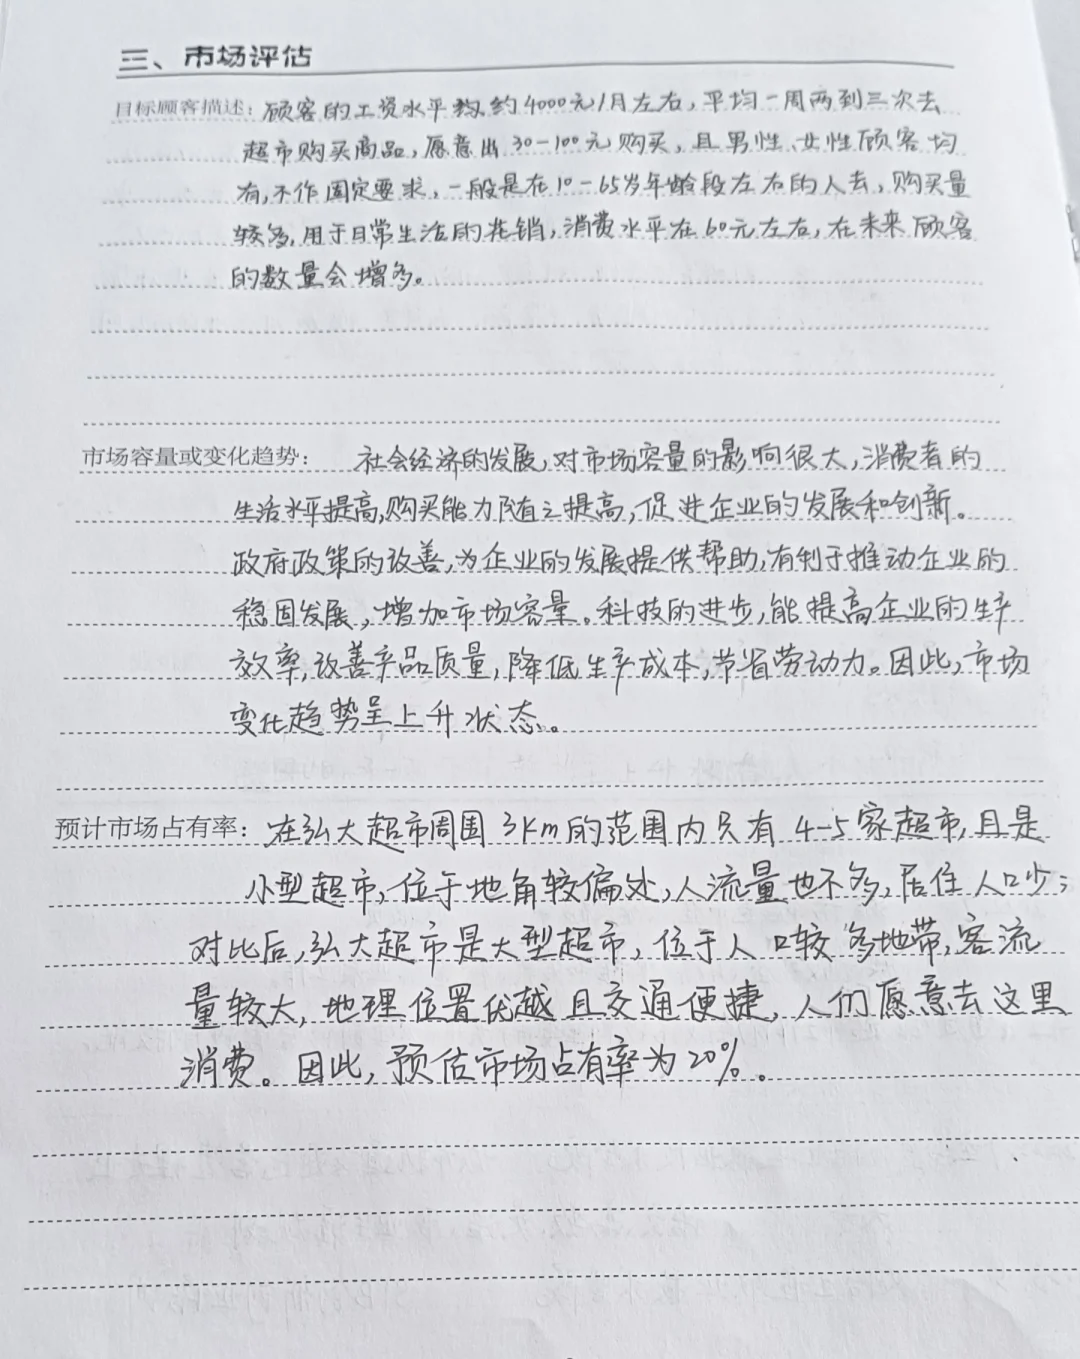 三、市场评估
目标顾客描述：顾客的工资水平约4000元/月左右，平均一周两到三次去
超市购买商品，愿意出30-100元购买，且男性、女性顾客均
有，不作固定要求，一般是在10-65岁年龄段左右的人去，购买量
较多，用于日常生活的花销，消费水平在60元左右，在未来顾客
的数量会增多。
市场容量或变化趋势：社会经济的发展，对市场容量的影响很大，消费者的
生活水平提高，购买能力随之提高，促进企业的发展和创新。
政府政策的改善，为企业的发展提供帮助，有利于推动企业的
稳固发展，增加市场容量。科技的进步，能提高企业的生产
效率，改善产品质量，降低生产成本，节省劳动力。因此，市场
变化趋势呈上升状态。
预计市场占有率：在弘大超市周围3km的范围内只有4-5家超市，且是
小型超市，位于地角较偏处，人流量也不多，居住人口少；
对比后，弘大超市是大型超市，位于人口较多地带，客流
量较大，地理位置优越且交通便捷，人们愿意去这里
消费。因此，预估市场占有率为20%。